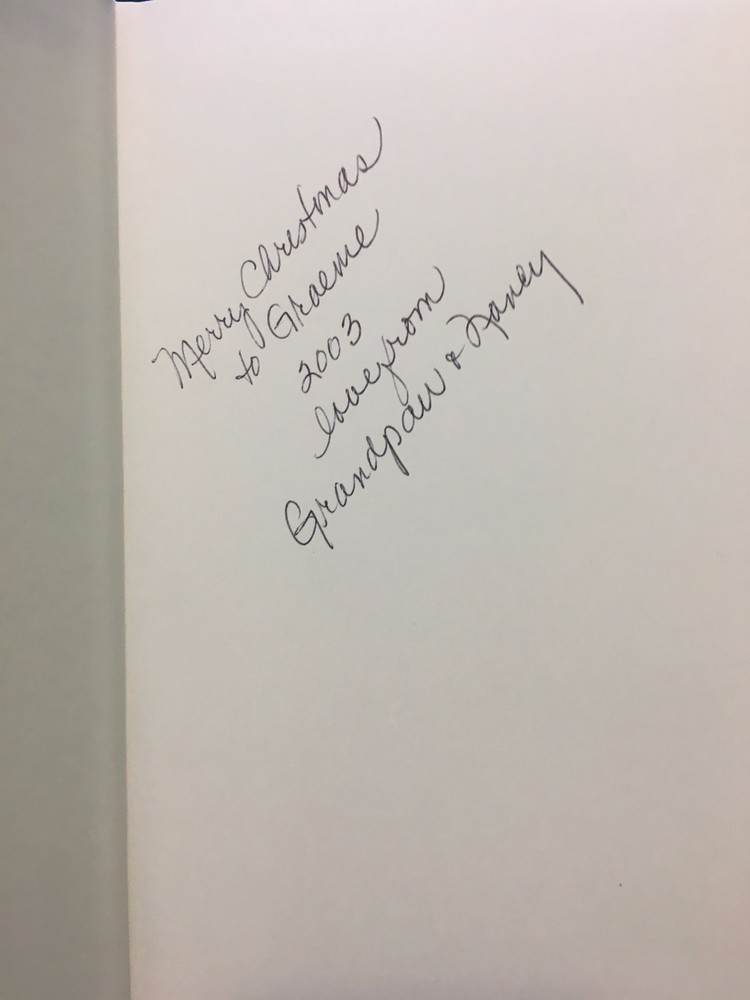 Merry Christmas
to Graeme
2003
love from
Grandpaw & Nancy